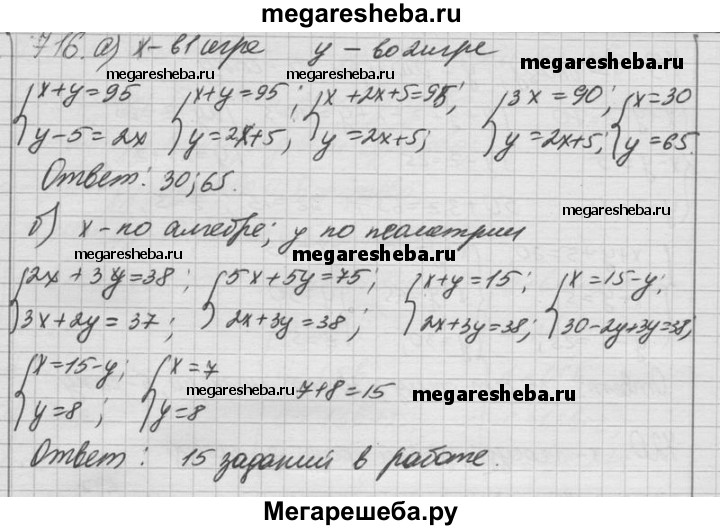 megaresheba.ru
716. а) x - в 1 игре y - во 2 игре
megaresheba.ru megaresheba.ru megaresheba.ru
{x+y=95 {x+y=95; {x+2x+5=95; {3x=90; {x=30
{y-5=2x {y=2x+5; {y=2x+5; {y=2x+5; {y=65.
Ответ: 30; 65.
megaresheba.ru
б) x - по алгебре; y по геометрии
megaresheba.ru megaresheba.ru
{2x+3y=38; {5x+5y=75; {x+y=15; {x=15-y;
{3x+2y=37; {2x+3y=38; {2x+3y=38; {30-2y+3y=38;
{x=15-y; {x=7
megaresheba.ru 7+8=15 megaresheba.ru
{y=8; {y=8
Ответ: 15 заданий в работе.
Мегарешеба.ру